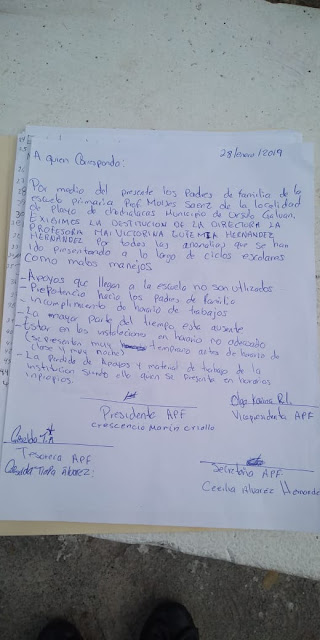 28/enero/2019
A quien Corresponda:
Por medio del presente los Padres de familia de la
escuela primaria Prof Moises Saenz de la localidad
de Playa de chachalacas Municipio de Ursulo Galvan.
EXIGIMOS LA DESTITUCION DE LA DIRECTORA LA
PROFESORA MA. VICTORINA HERNANDEZ
HERNANDEZ Por todas las anomalias que se han
ido presentando a lo largo de ciclos escolares
como malos manejos
- Apoyos que llegan a la escuela no son utilizados
- Prepotencia hacia los padres de familia
- incumplimiento de horario de trabajos
- La mayor parte del tiempo esta ausente
- Estar en las instalaciones en horario no adecuado
(se presentan muy temprano antes de horario de
clase y muy noche)
- La perdida de Apoyos y material de trabajo de la
institucion siendo ella quien se presenta en horarios
inpropios.
Presidente APF
Crescencio Marin Criollo
Olga Karina
Vicepresidenta APF
Tesorera APF
Alvarez
Secretaria APF
Cecilia Alvarez Hernande